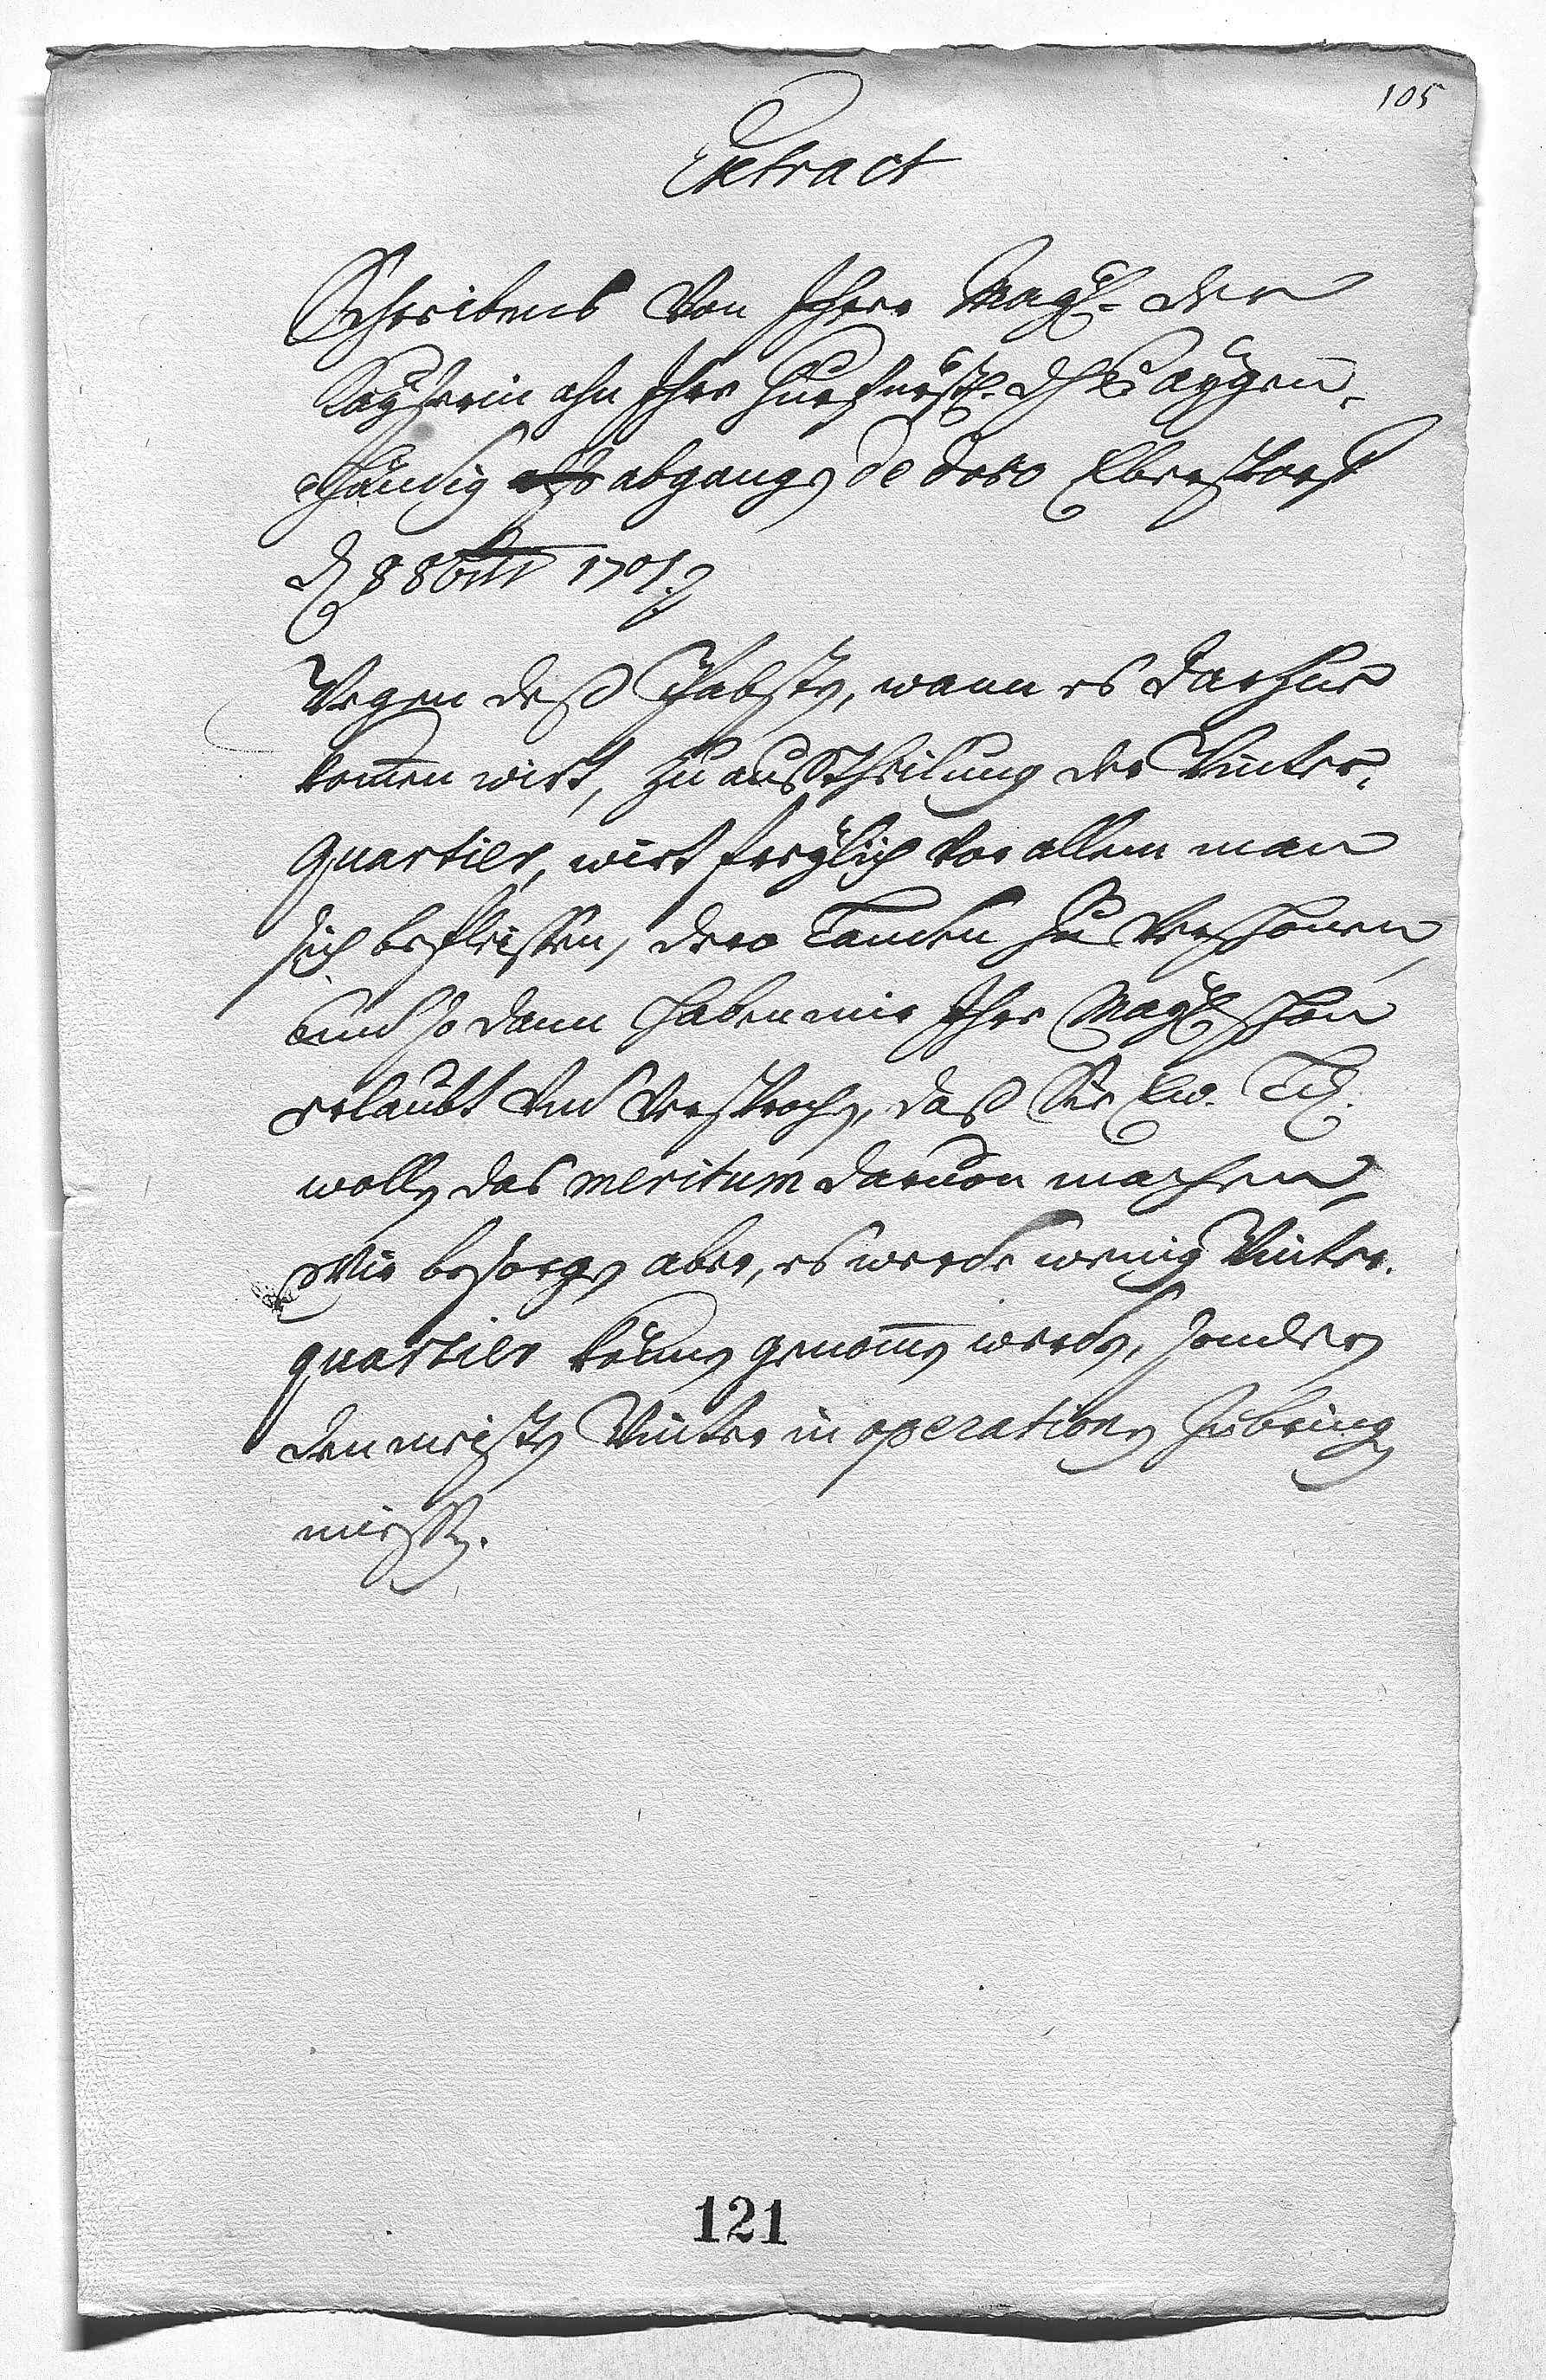 105
Extract
Schreibens von Ihrer Mayt. der
Kayserin ahn Ihre Churfürstl. Dhlt aygen-
händig abgangen de dato Eberstorf
den 8 8bris 1701.
Wegen deß Pabsts, wann es darzue
komen wirt, zu außtheilung der Winter-
quartier, wirt freylich vor allem man
sich befleissen, dero Landen zu verschonen,
und so dann haben mir Ihre Mayt schon
erlaubt und versprochen, daß Sie Ew. Ld.
wollen das meritum daruon machen,
Wir besorgen aber, es werde wenig Winter-
quartier können genomen werden, sondern
den meisten Winter in operationen zubringen
miessen.
121